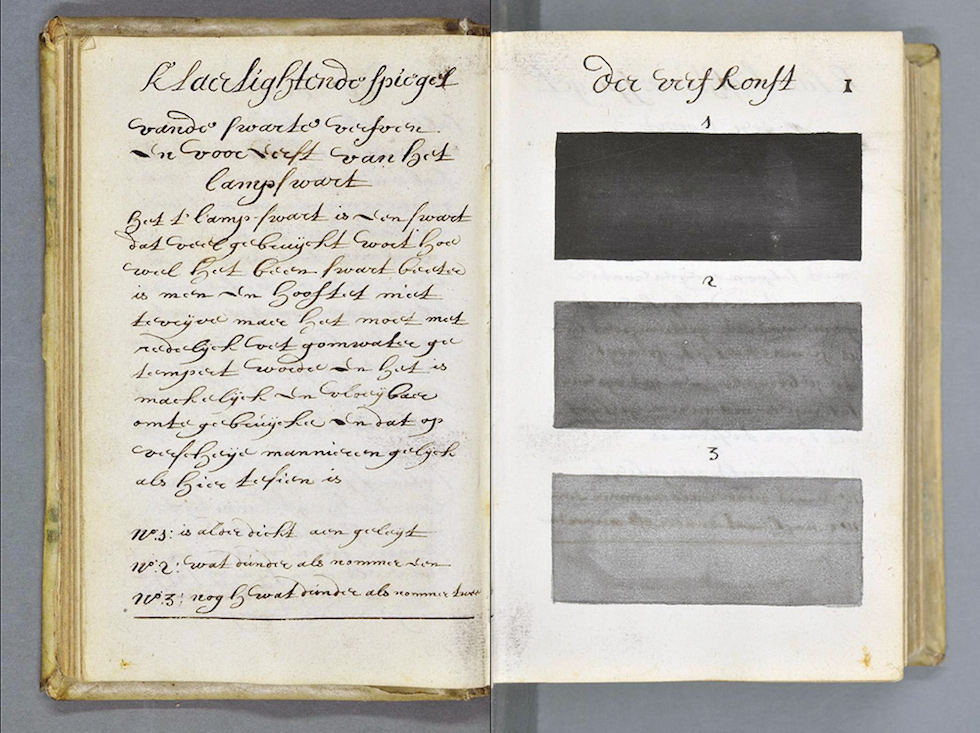 Klaerlightende spiegel
vande swarte verfven
En voor Eerst van het
lampswart
Het t' lamp-swart is Een swart
dat veel gebruijckt wort hoe
wel het been swart beeter
is men En hooftet niet
te vrijve maer het moet met
redelijck vet gomwater ge
tempert worde En het is
mackelijck En vloeijbaer
omte gebruijcke En dat op
verscheije mannieren gelijck
als hier te sien is
No 1: is alder dickt aen geleijt
No: 2: wat dunder als nommer Een
No 3: nog h wat dunder als nommer twe
der verf konst 1
1
2
3